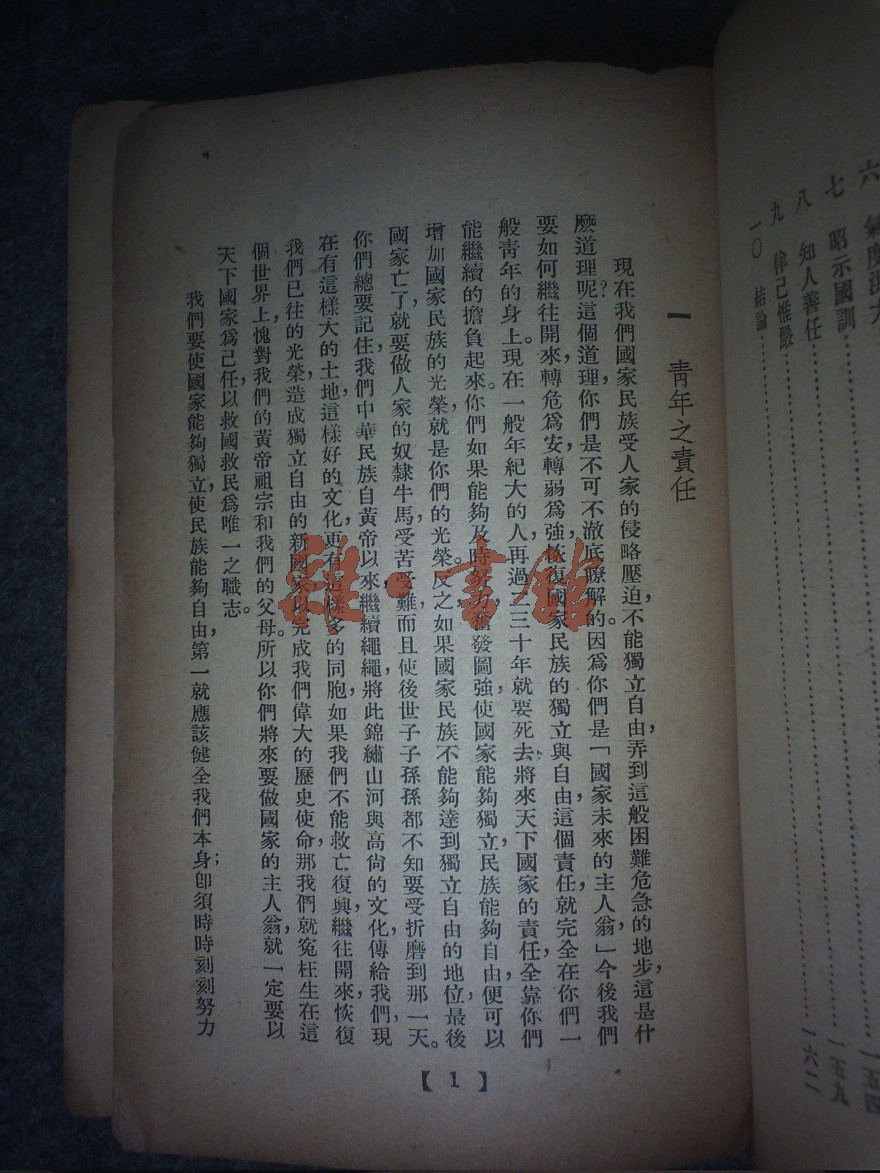 六 氣度洪大 一五四
七 昭示國訓 一五九
八 知人善任
九 律己惟嚴
一〇 結論 一六二
一 靑年之責任
現在我們國家民族受人家的侵略壓迫，不能獨立自由，弄到這般困難危急的地步，這是什
麽道理呢？這個道理，你們是不可不澈底瞭解的。因爲你們是「國家未來的主人翁，」今後我們
要如何繼往開來，轉危爲安，轉弱爲強，恢復國家民族的獨立與自由，這個責任，就完全在你們一
般靑年的身上。現在一般年紀大的人，再過二三十年就要死去，將來天下國家的責任，全靠你們
能繼續的擔負起來。你們如果能夠及時努力，奮發圖強，使國家能夠獨立，民族能夠自由，便可以
增加國家民族的光榮，就是你們的光榮。反之，如果國家民族不能夠達到獨立自由的地位，最後
國家亡了，就要做人家的奴隸牛馬，受苦受難，而且使後世子子孫孫都不知要受折磨到那一天。
你們總要記住，我們中華民族自黃帝以來，繼續繩繩，將此錦繡山河與高尙的文化傳給我們，現
在有這樣大的土地，這樣好的文化，更有這樣多的同胞，如果我們不能救亡復興，繼往開來，恢復
我們已往的光榮，造成獨立自由的新國家，以完成我們偉大的歷史使命，那我們就冤枉生在這
個世界上，愧對我們的黃帝祖宗和我們的父母。所以你們將來要做國家的主人翁，就一定要以
天下國家爲己任，以救國救民爲唯一之職志。
我們要使國家能夠獨立，使民族能夠自由，第一就應該健全我們本身；卽須時時刻刻努力
【1】
雜·書館